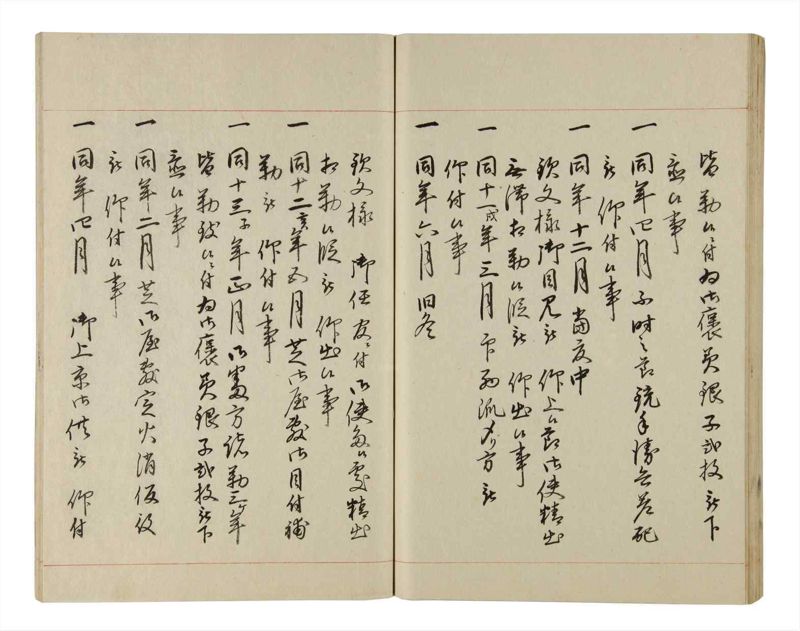 皆勤ニ付為御褒美銀子弐枚被下
置候事
一 同年四月 不時之節
被 仰付候事
一 同年十二月 当夏中
欽文様御目見被 仰上候節御使精出
無滞相勤候段被 仰出候事
一 同十一戌年三月 方被
仰付候事
一 同年六月 旧冬
欽文様 御任官ニ付御使多候処精出
相勤候段被 仰出候事
一 同十二亥年五月芝御屋敷御目付補
勤被 仰付候事
一 同十三子年正月 方 勤三ヶ年
皆勤致候ニ付為御褒美銀子弐枚被下
置候事
一 同年二月芝御屋敷定火消仮役
被 仰付候事
一 同年四月 御上京御供被 仰付